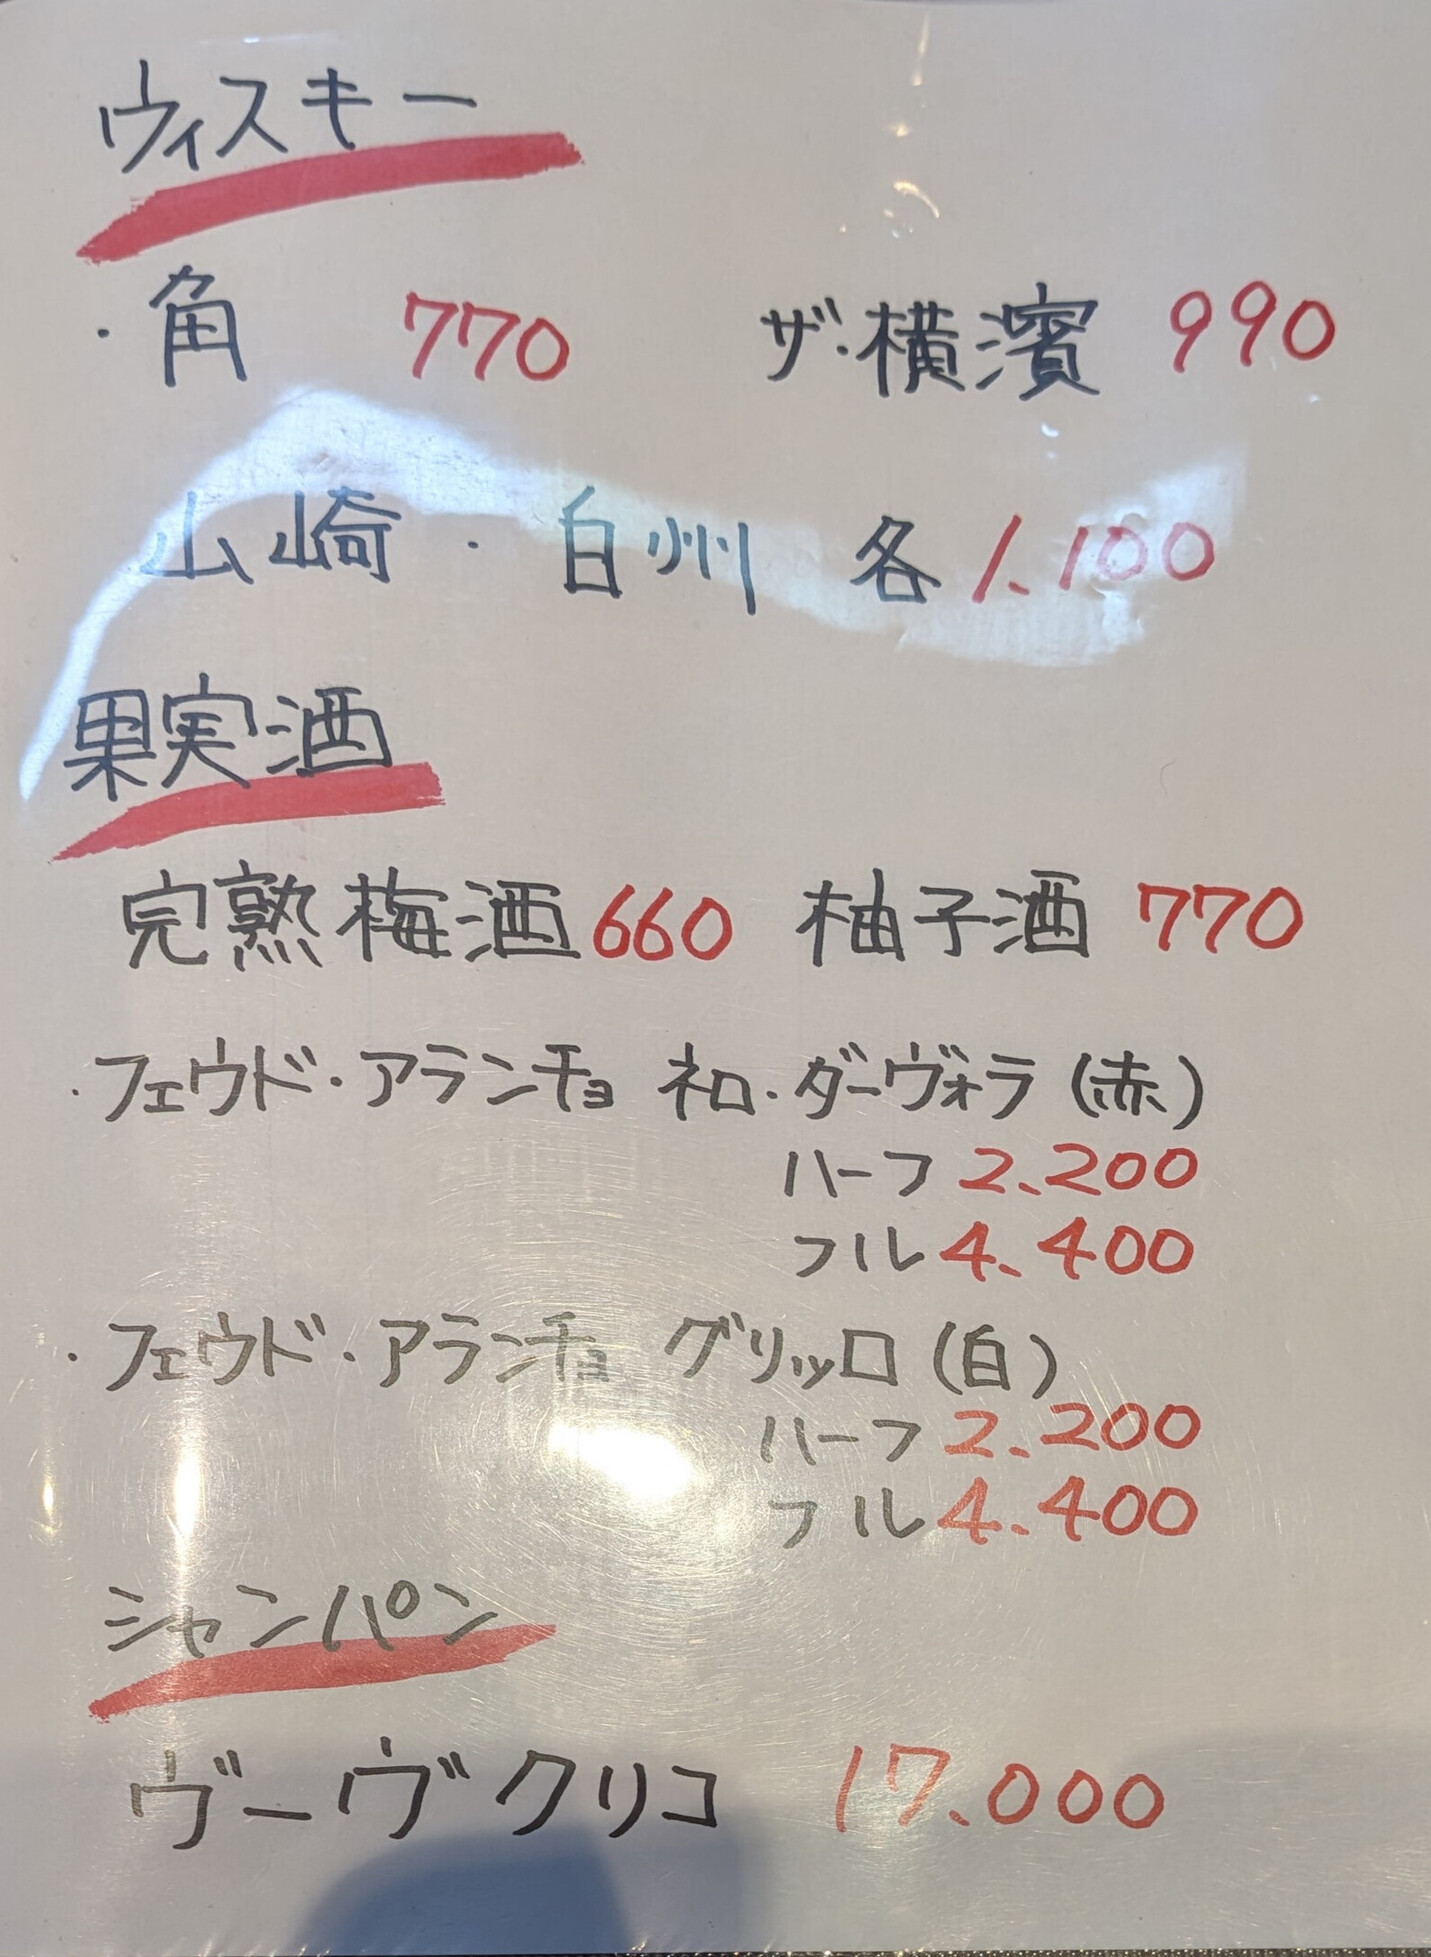 ウィスキー
・角 770 ザ・横濱 990
山崎・白州 各1.100
果実酒
完熟梅酒660 柚子酒 770
・フェウド・アランチョ ネロ・ダーヴォラ(赤)
ハーフ 2.200
フル 4.400
・フェウド・アランチョ グリッロ(白)
ハーフ 2.200
フル 4.400
シャンパン
ヴーヴクリコ 17.000